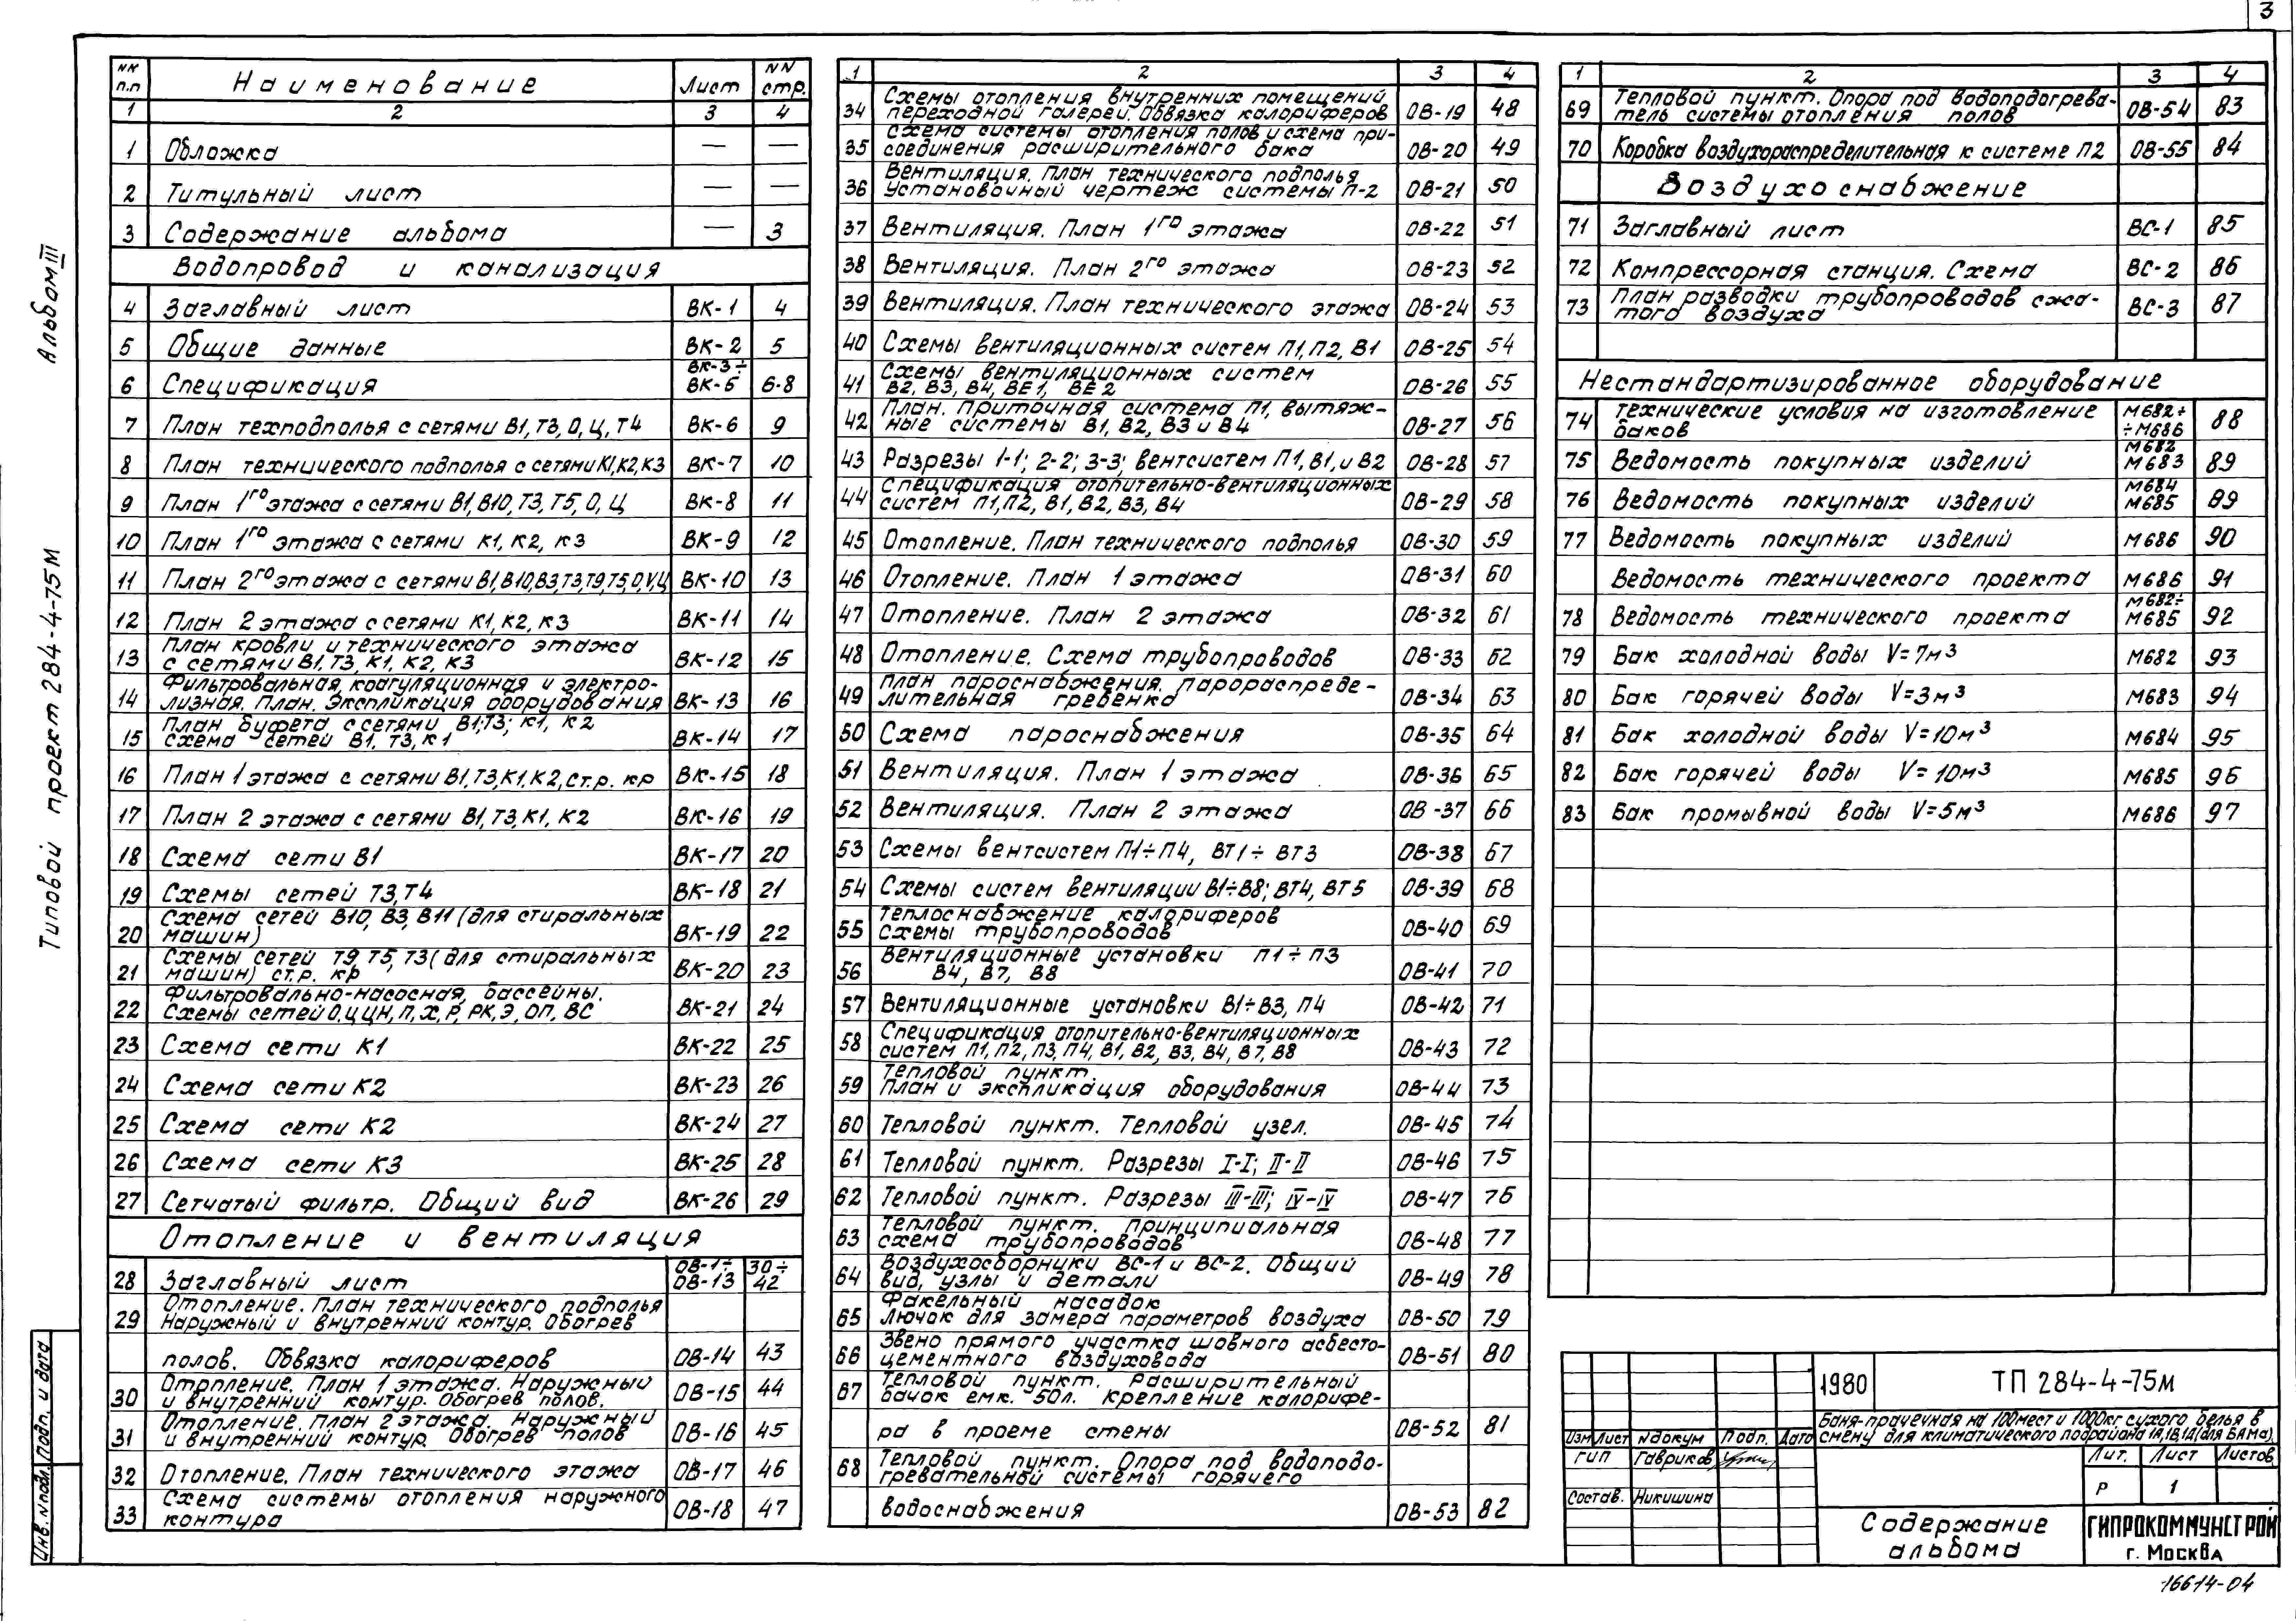 3
Альбом III
Типовой проект 284-4-75М
Инв. N подл. Подп. и дата
NN п.п Наименование Лист NN стр.
1 2 3 4
1 Обложка — —
2 Титульный лист — —
3 Содержание альбома — 3
Водопровод и канализация
4 Заглавный лист ВК-1 4
5 Общие данные ВК-2 5
6 Спецификация ВК-3÷ ВК-5 6-8
7 План техподполья с сетями В1, Т3, О, Ц, Т4 ВК-6 9
8 План технического подполья с сетями К1, К2, К3 ВК-7 10
9 План 1го этажа с сетями В1, В10, Т3, Т5, О, Ц ВК-8 11
10 План 1го этажа с сетями К1, К2, К3 ВК-9 12
11 План 2го этажа с сетями В1, В10, В3, Т3, Т9, Т5, О, V, Ц ВК-10 13
12 План 2 этажа с сетями К1, К2, К3 ВК-11 14
13 План кровли и технического этажа
с сетями В1, Т3, К1, К2, К3 ВК-12 15
14 Фильтровальная, коагуляционная и электро-
лизная. План. Экспликация оборудования ВК-13 16
15 План буфета с сетями В1; Т3; К1, К2
схема сетей В1, Т3, К1 ВК-14 17
16 План 1 этажа с сетями В1, Т3, К1, К2, ст.р. кр ВК-15 18
17 План 2 этажа с сетями В1, Т3, К1, К2 ВК-16 19
18 Схема сети В1 ВК-17 20
19 Схемы сетей Т3, Т4 ВК-18 21
20 Схема сетей В10, В3, В11 (для стиральных
машин) ВК-19 22
21 Схемы сетей Т9, Т5, Т3 (для стиральных
машин) ст.р. кр ВК-20 23
22 Фильтровально-насосная, бассейны.
Схемы сетей О, Ц, ЦН, П, Х, Р, РК, Э, ОП, ВС ВК-21 24
23 Схема сети К1 ВК-22 25
24 Схема сети К2 ВК-23 26
25 Схема сети К2 ВК-24 27
26 Схема сети К3 ВК-25 28
27 Сетчатый фильтр. Общий вид ВК-26 29
Отопление и вентиляция
28 Заглавный лист ОВ-1÷ ОВ-13 30÷ 42
29 Отопление. План технического подполья
Наружный и внутренний контур. Обогрев
полов. Обвязка калориферов ОВ-14 43
30 Отопление. План 1 этажа. Наружный
и внутренний контур. Обогрев полов. ОВ-15 44
31 Отопление. План 2 этажа. Наружный
и внутренний контур. Обогрев полов ОВ-16 45
32 Отопление. План технического этажа ОВ-17 46
33 Схема системы отопления наружного
контура ОВ-18 47
1 2 3 4
34 Схемы отопления внутренних помещений
переходной галереи. Обвязка калориферов ОВ-19 48
35 Схема системы отопления полов и схема при-
соединения расширительного бака ОВ-20 49
36 Вентиляция. План технического подполья
Установочный чертеж системы П-2 ОВ-21 50
37 Вентиляция. План 1го этажа ОВ-22 51
38 Вентиляция. План 2го этажа ОВ-23 52
39 Вентиляция. План технического этажа ОВ-24 53
40 Схемы вентиляционных систем П1, П2, В1 ОВ-25 54
41 Схемы вентиляционных систем
В2, В3, В4, ВЕ1, ВЕ2 ОВ-26 55
42 План. Приточная система П1, вытяж-
ные системы В1, В2, В3 и В4 ОВ-27 56
43 Разрезы 1-1; 2-2; 3-3; вентсистем П1, В1, и В2 ОВ-28 57
44 Спецификация отопительно-вентиляционных
систем П1, П2, В1, В2, В3, В4 ОВ-29 58
45 Отопление. План технического подполья ОВ-30 59
46 Отопление. План 1 этажа ОВ-31 60
47 Отопление. План 2 этажа ОВ-32 61
48 Отопление. Схема трубопроводов ОВ-33 62
49 План пароснабжения. Парораспреде-
лительная гребенка ОВ-34 63
50 Схема пароснабжения ОВ-35 64
51 Вентиляция. План 1 этажа ОВ-36 65
52 Вентиляция. План 2 этажа ОВ-37 66
53 Схемы вентсистем П1÷П4, ВТ1÷ВТ3 ОВ-38 67
54 Схемы систем вентиляции В1÷В8; ВТ4, ВТ5 ОВ-39 68
55 Теплоснабжение калориферов
Схемы трубопроводов ОВ-40 69
56 Вентиляционные установки П1÷П3
В4, В7, В8 ОВ-41 70
57 Вентиляционные установки В1÷В3, П4 ОВ-42 71
58 Спецификация отопительно-вентиляционных
систем П1, П2, П3, П4, В1, В2, В3, В4, В7, В8 ОВ-43 72
59 Тепловой пункт.
План и экспликация оборудования ОВ-44 73
60 Тепловой пункт. Тепловой узел. ОВ-45 74
61 Тепловой пункт. Разрезы I-I; II-II ОВ-46 75
62 Тепловой пункт. Разрезы III-III; IV-IV ОВ-47 76
63 Тепловой пункт. Принципиальная
схема трубопроводов ОВ-48 77
64 Воздухосборники ВС-1 и ВС-2. Общий
вид, узлы и детали ОВ-49 78
65 Факельный насадок
Лючок для замера параметров воздуха ОВ-50 79
66 Звено прямого участка шовного асбесто-
цементного воздуховода ОВ-51 80
67 Тепловой пункт. Расширительный
бачок емк. 50л. Крепление калорифе-
ра в проеме стены ОВ-52 81
68 Тепловой пункт. Опора под водоподо-
гревательный системы горячего
водоснабжения ОВ-53 82
1 2 3 4
69 Тепловой пункт. Опора под водоподогрева-
тель системы отопления полов ОВ-54 83
70 Коробка воздухораспределительная к системе П2 ОВ-55 84
Воздухоснабжение
71 Заглавный лист ВС-1 85
72 Компрессорная станция. Схема ВС-2 86
73 План разводки трубопроводов сжа-
того воздуха ВС-3 87
Нестандартизированное оборудование
74 Технические условия на изготовление
баков М682÷ ÷М686 88
75 Ведомость покупных изделий М682 М683 89
76 Ведомость покупных изделий М684 М685 89
77 Ведомость покупных изделий М686 90
Ведомость технического проекта М686 91
78 Ведомость технического проекта М682÷ М685 92
79 Бак холодной воды V=7м³ М682 93
80 Бак горячей воды V=3м³ М683 94
81 Бак холодной воды V=10м³ М684 95
82 Бак горячей воды V=10м³ М685 96
83 Бак промывной воды V=5м³ М686 97
1980 ТП 284-4-75м
Баня-прачечная на 100 мест и 1000 кг. сухого белья в
смену для климатического подрайона 1А, 1В, 1Д (для БАМа)
Изм Лист N докум Подп. Дата
ГИП Гавриков
Состав. Никишина
Лит. Лист Листов
Р 1
Содержание
альбома
ГИПРОКОММУНСТРОЙ
г. Москва
16614-04